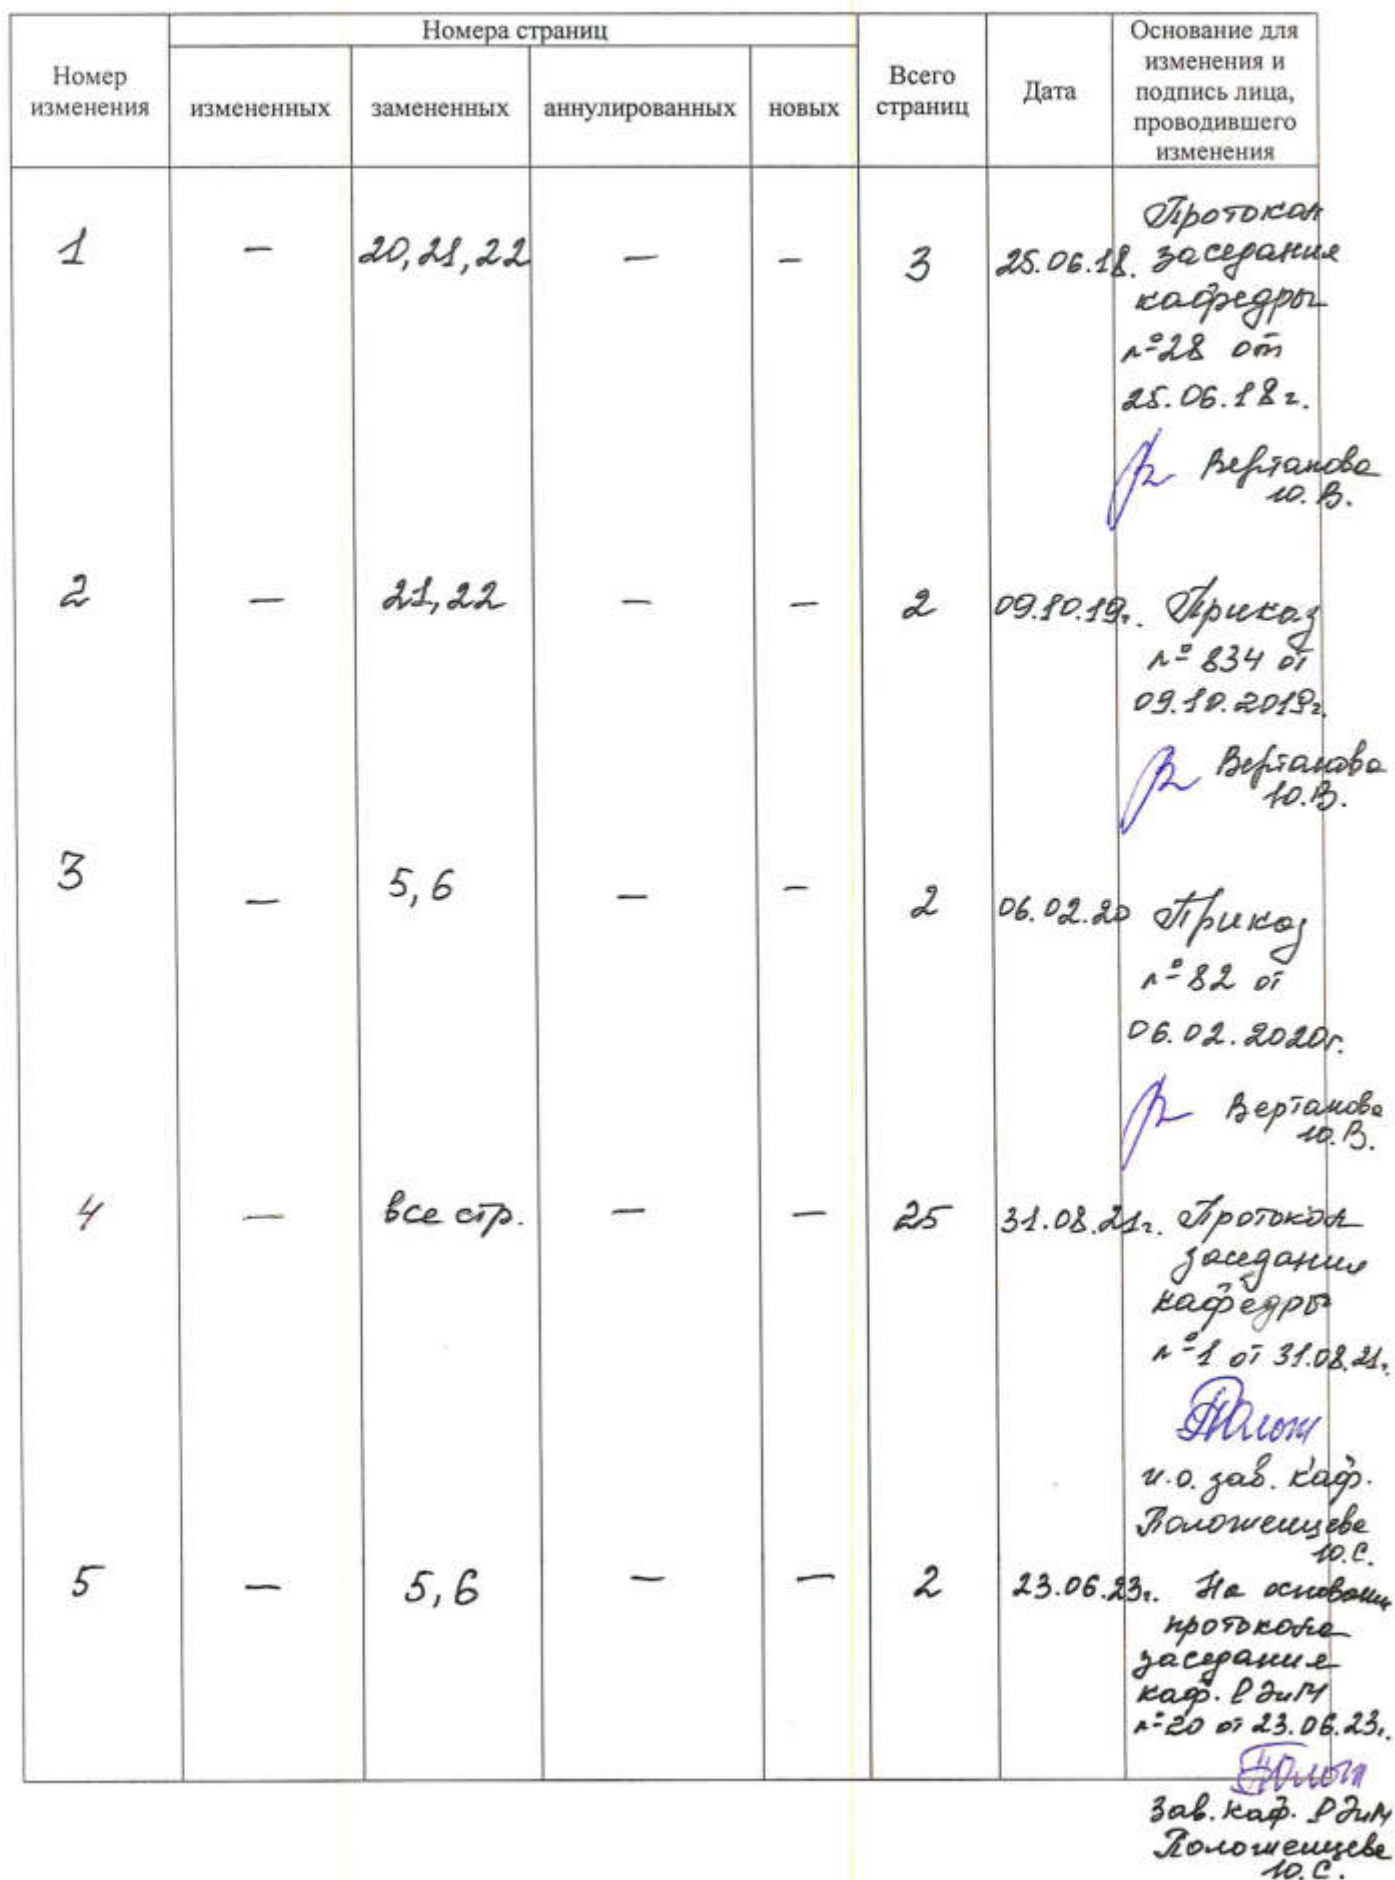 Номер изменения
Номера страниц
измененных
замененных
аннулированных
новых
Всего страниц
Дата
Основание для
изменения и
подпись лица,
проводившего
изменения
1 — 20, 21, 22 — — 3 25.06.18. Протокол
заседания
кафедры
№28 от
25.06.18г.
Вертакова
Ю.В.
2 — 21, 22 — — 2 09.10.19г. Приказ
№ 834 от
09.10.2019г.
Вертакова
Ю.В.
3 — 5, 6 — — 2 06.02.20 Приказ
№ 82 от
06.02.2020г.
Вертакова
Ю.В.
4 — все стр. — — 25 31.08.21г. Протокол
заседания
кафедры
№1 от 31.08.21г.
и.о. зав. каф.
Положенцева
Ю.С.
5 — 5, 6 — — 2 23.06.23г. На основании
протокола
заседания
каф. РЭиМ
№20 от 23.06.23г.
Зав. каф. РЭиМ
Положенцева
Ю.С.